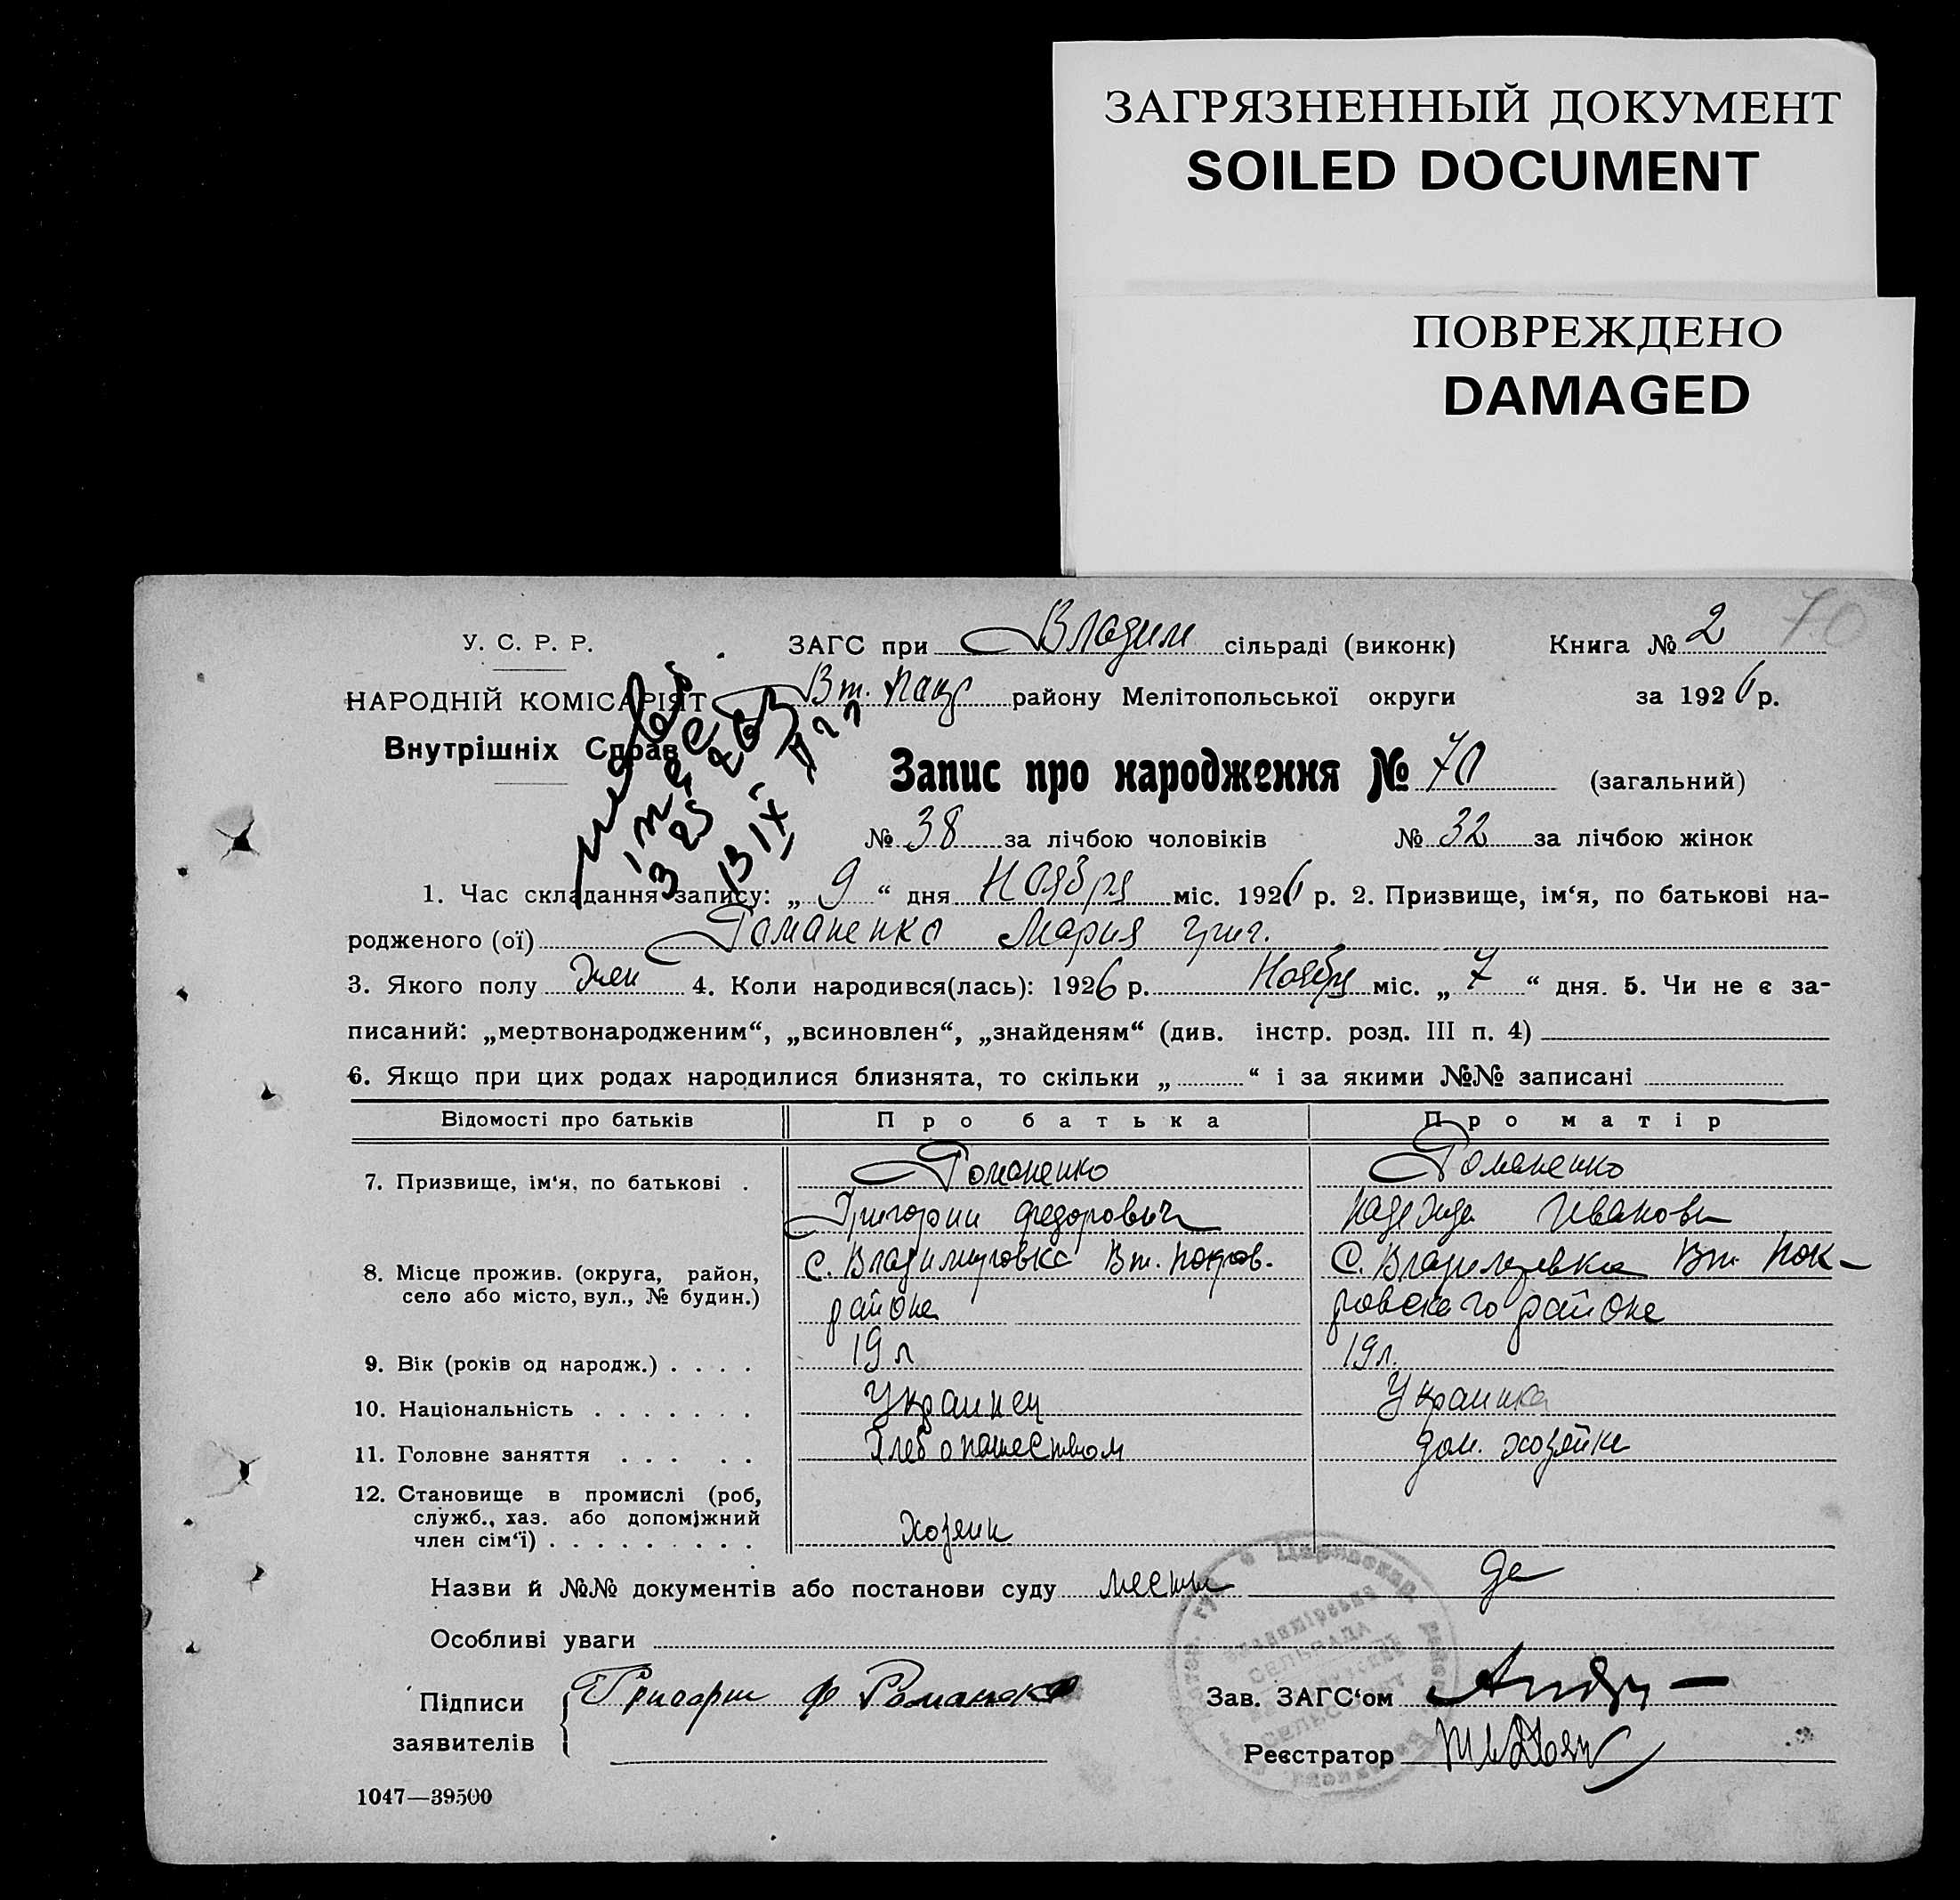 ЗАГРЯЗНЕННЫЙ ДОКУМЕНТ
SOILED DOCUMENT
ПОВРЕЖДЕНО
DAMAGED
У. С. Р. Р. ЗАГС при Владим сільраді (виконк) Книга № 2 70
НАРОДНІЙ КОМІСАРІЯТ Вт. району Мелітопольської округи за 1926 р.
Внутрішніх Справ
Запис про народження № 70 (загальний)
№ 38 за лічбою чоловіків № 32 за лічбою жінок
1. Час складання запису: „ 9 “ дня Ноября міс. 1926 р. 2. Призвище, ім‘я, по батькові на-
родженого (ої) Романенко Мария Григ.
3. Якого полу жен 4. Коли народився(лась): 1926 р. Ноября міс. „ 7 “ дня. 5. Чи не є за-
писаний: „мертвонародженим“, „всиновлен“, „знайденям“ (див. інстр. розд. III п. 4)
6. Якщо при цих родах народилися близнята, то скільки „ “ і за якими №№ записані
Відомості про батьків Про батька Про матір
7. Призвище, ім‘я, по батькові . Романенко Романенко
Григорий Федорович Надежда Иванов
8. Місце прожив. (округа, район, с. Владимировка Вт. Покров. с. Владимировка Вт. Пок-
село або місто, вул., № будин.) района ровского района
9. Вік (років од народж.) . . . . 19 л 19 л.
10. Національність . . . . . . . Украинец Украинка
11. Головне заняття . . . . . Хлебопашеством дом. хозяйка
12. Становище в промислі (роб,
служб., хаз. або допоміжний
член сім‘ї) . . . . . . . . . хозяин
Назви й №№ документів або постанови суду
Особливі уваги
Підписи Григорий Ф Романенко Зав. ЗАГС‘ом
заявителів Реєстратор
1047—39500